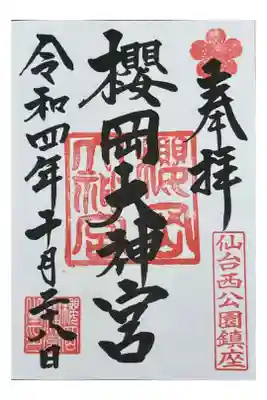 奉拝
仙台西公園鎮座
櫻岡大神宮
櫻岡大神宮
令和四年
月
日